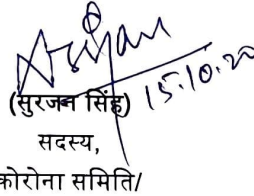 15.10.20
(सुरजन सिंह)
सदस्य,
कोरोना समिति/